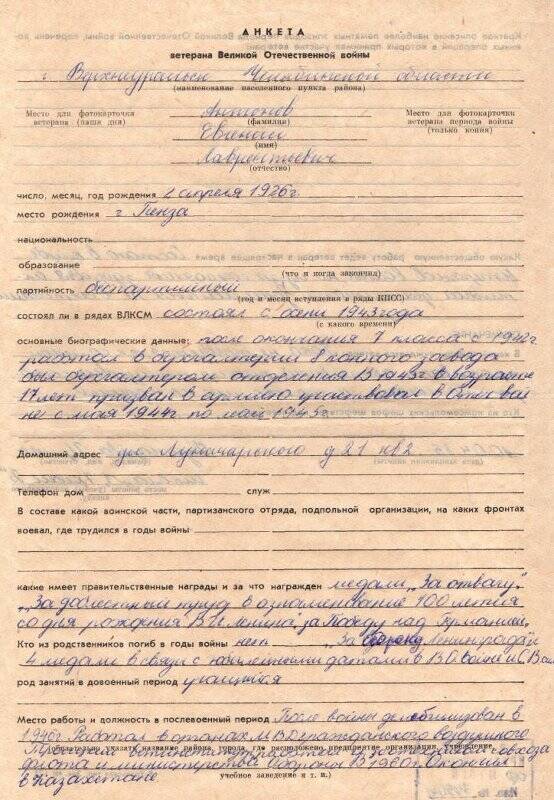 АНКЕТА
ветерана Великой Отечественной войны
г. Верхнеуральск Челябинской области
(наименование населенного пункта района)
Место для фотокарточки
ветерана (наши дни)
Антонов
(фамилия)
Евгений
(имя)
Лаврентьевич
(отчество)
Место для фотокарточки
ветерана периода войны
(только копия)
число, месяц, год рождения 2 апреля 1926г
место рождения г Пенза
национальность
образование
(что и когда закончил)
партийность беспартийный
(год и месяц вступления в ряды КПСС)
состоял ли в рядах ВЛКСМ состоял с осени 1943 года
(с какого времени)
основные биографические данные: после окончания 7 класса с 1942г
работал в бухгалтерии 8 конного завода
был бухгалтером отделения В 1943г в возрасте
17 лет призван в армию участвовал в Отеч вой
не с мая 1944г по май 1945г
Домашний адрес ул Луначарского д 21 кв 2
Телефон дом служ
В составе какой воинской части, партизанского отряда, подпольной организации, на каких фронтах
воевал, где трудился в годы войны
какие имеет правительственные награды и за что награжден медали „За отвагу"
„За доблестный труд в ознаменование 100 летия
со дня рождения В И Ленина, за Победу над Германией,
Кто из родственников погиб в годы войны нет „За оборону Ленинграда" и
4 медали в связи с юбилейными датами в В О войне и С В
род занятий в довоенный период учащийся
Место работы и должность в послевоенный период После войны демобилизован в
Работал в органах МВД гражданского воздушного
(обязательно указать название района, города, где расположено предприятие, организация, учреждение,
флота и министерства обороны В 1980г. Окончил
учебное заведение и т. п.)
в Казахстане